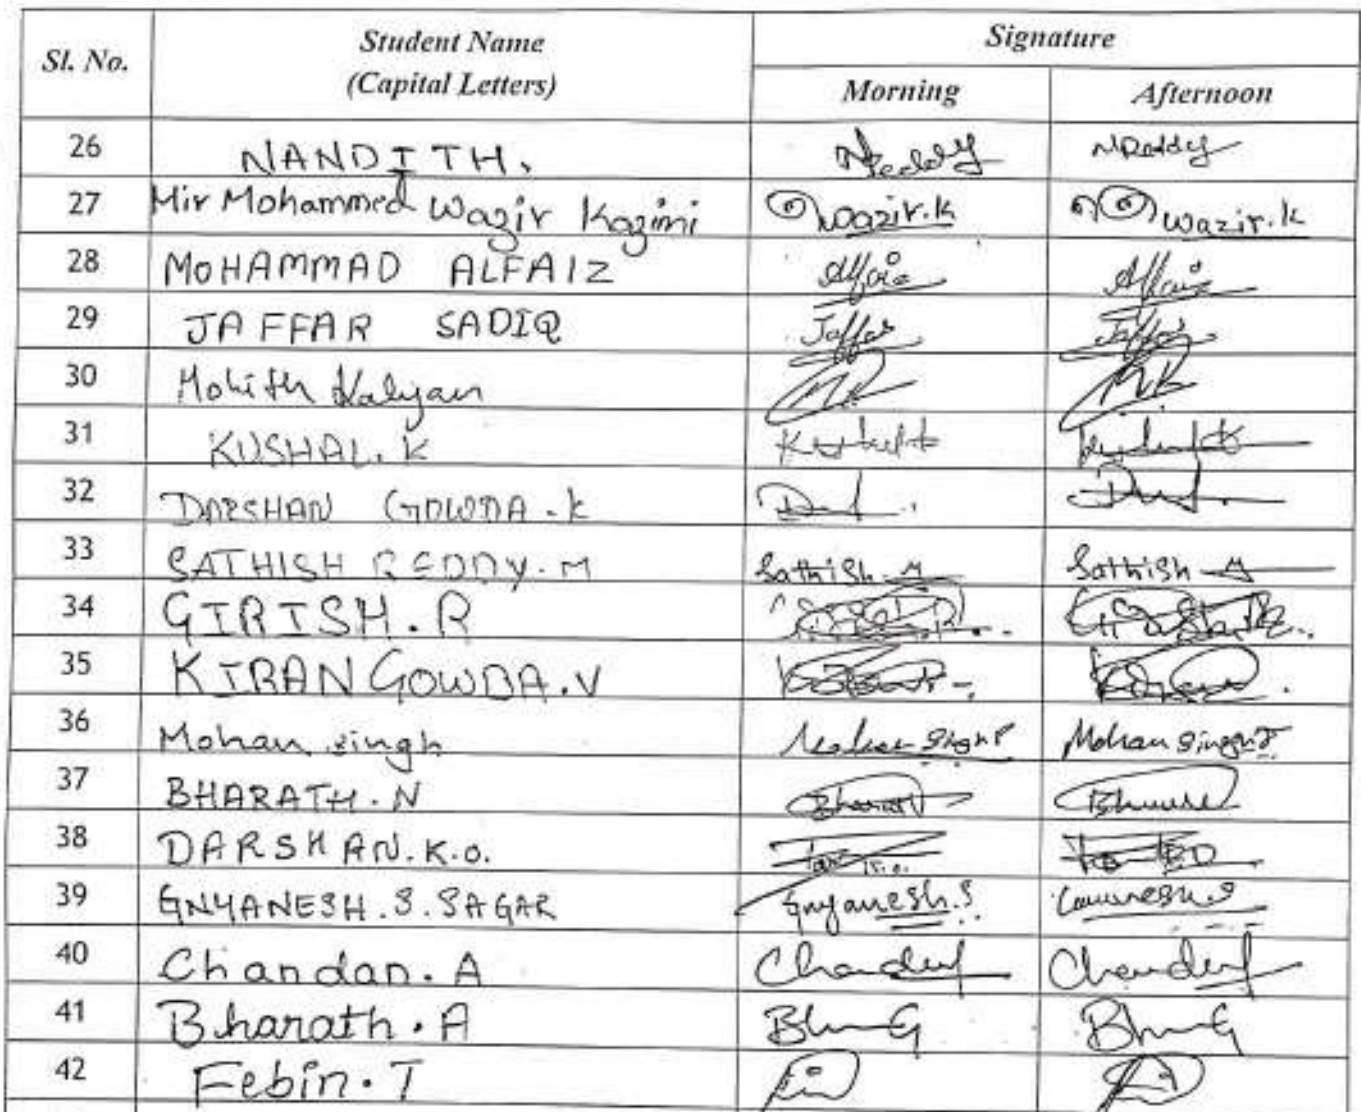 Sl. No. Student Name Signature
(Capital Letters) Morning Afternoon
26 NANDITH. NReddy NReddy
27 Mir Mohammed Wazir Kazimi Wazir.k Wazir.k
28 MOHAMMAD ALFAIZ Alfaiz Alfaiz
29 JAFFAR SADIQ Jaffar Jaffar
30 Mohith Kalyan
31 KUSHAL.K
32 DARSHAN GOWDA.K
33 SATHISH REDDY.M Sathish M Sathish M
34 GIRISH.R
35 KIRAN GOWDA.V
36 Mohan singh Mohan Singh Mohan Singh
37 BHARATH.N Bharath
38 DARSHAN.K.O.
39 GNYANESH.S.SAGAR Gnyanesh.S
40 Chandan.A
41 Bharath.A
42 Febin.T